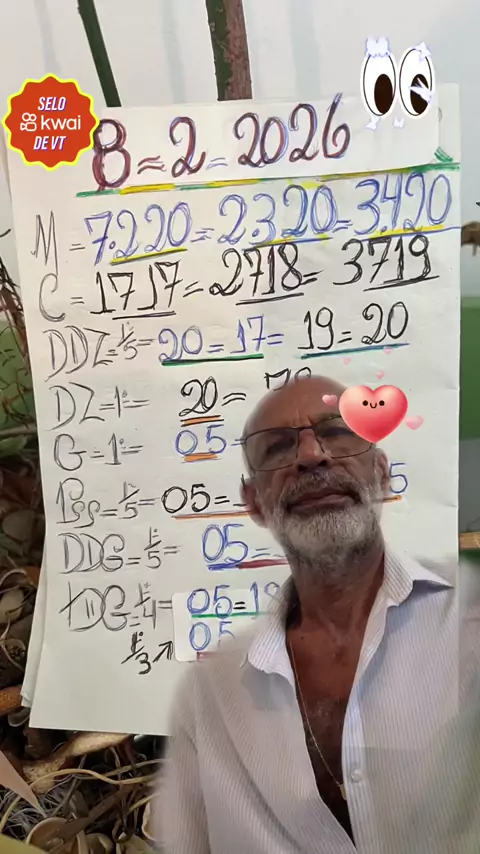 SELO
kwai
DE VT
8=2=2026
M=7.220=2.320=3.420
C=1717=2718=3719
DDZ=1/5=20=17=19=20
DZ=1º=20=
G=1º=05
Pss=1/5=05=
DDG=1/5=05=
TDG=1/4=05=18
1/3 05